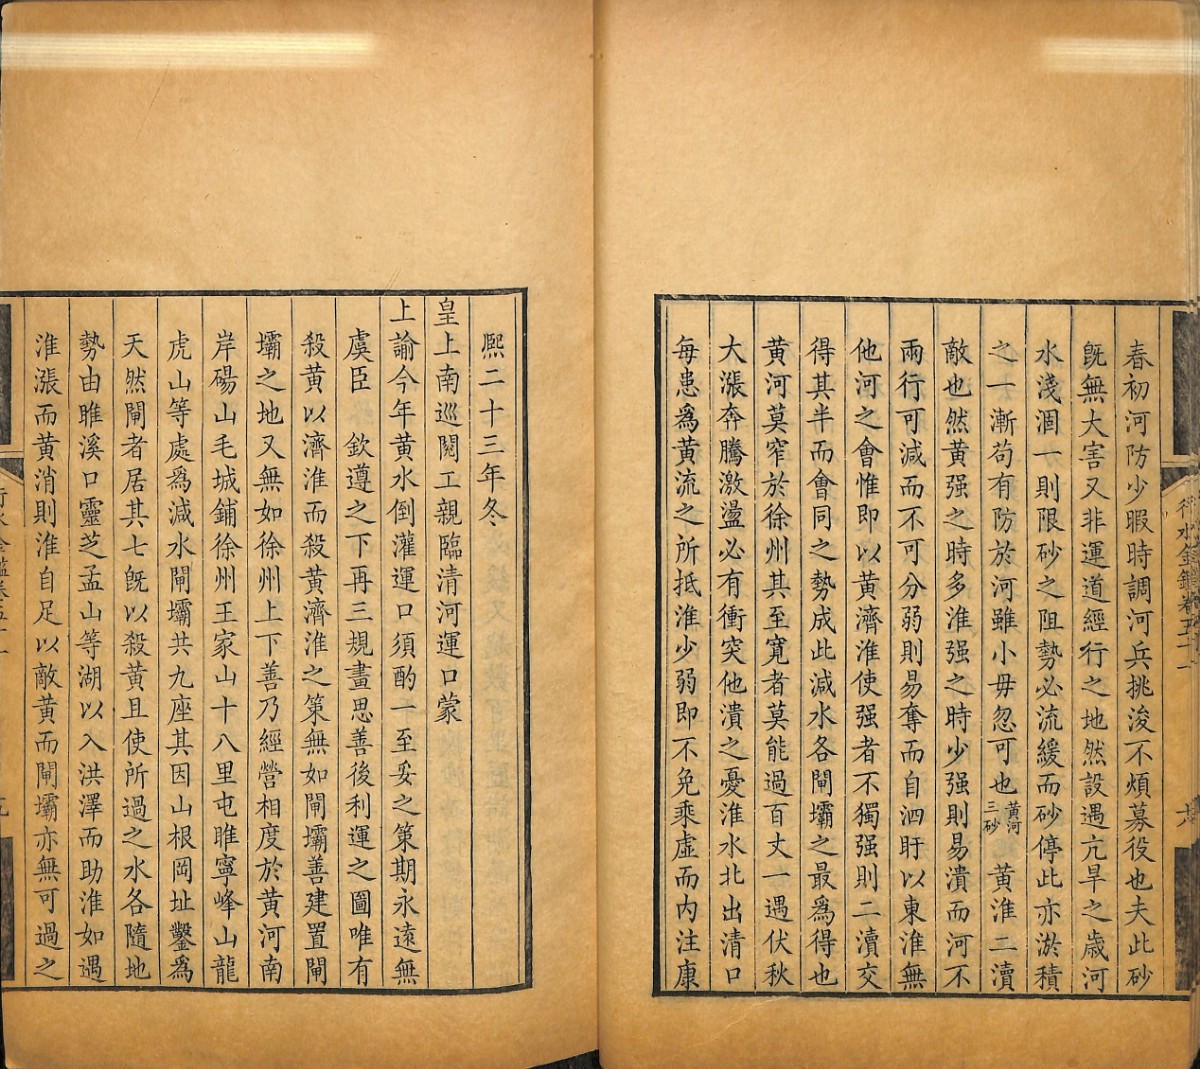 春初河防少暇時調河兵挑浚不煩募役也夫此砂
既無大害又非運道經行之地然設遇亢旱之歲河
水淺涸一則限砂之阻勢必流緩而砂停此亦淤積
之一漸苟有防於河雖小毋忽可也黃河三砂 黃淮二瀆
敵也然黃强之時多淮强之時少强則易潰而河不
兩行可減而不可分弱則易奪而自泗盱以東淮無
他河之會惟即以黃濟淮使强者不獨强則二瀆交
得其半而會同之勢成此減水各閘壩之最爲得也
黃河莫窄於徐州其至寬者莫能過百丈一遇伏秋
大漲奔騰激盪必有衝突他潰之憂淮水北出清口
每患爲黃流之所抵淮少弱即不免乘虛而內注康
行水金鑑卷五十一
熙二十三年冬
皇上南巡閱工親臨清河運口蒙
上諭今年黃水倒灌運口須酌一至妥之策期永遠無
虞臣 欽遵之下再三規畫思善後利運之圖唯有
殺黃以濟淮而殺黃濟淮之策無如閘壩善建置閘
壩之地又無如徐州上下善乃經營相度於黃河南
岸碭山毛城鋪徐州王家山十八里屯睢寧峰山龍
虎山等處爲減水閘壩共九座其因山根岡址鑿爲
天然閘者居其七既以殺黃且使所過之水各隨地
勢由睢溪口靈芝孟山等湖以入洪澤而助淮如遇
淮漲而黃消則淮自足以敵黃而閘壩亦無可過之